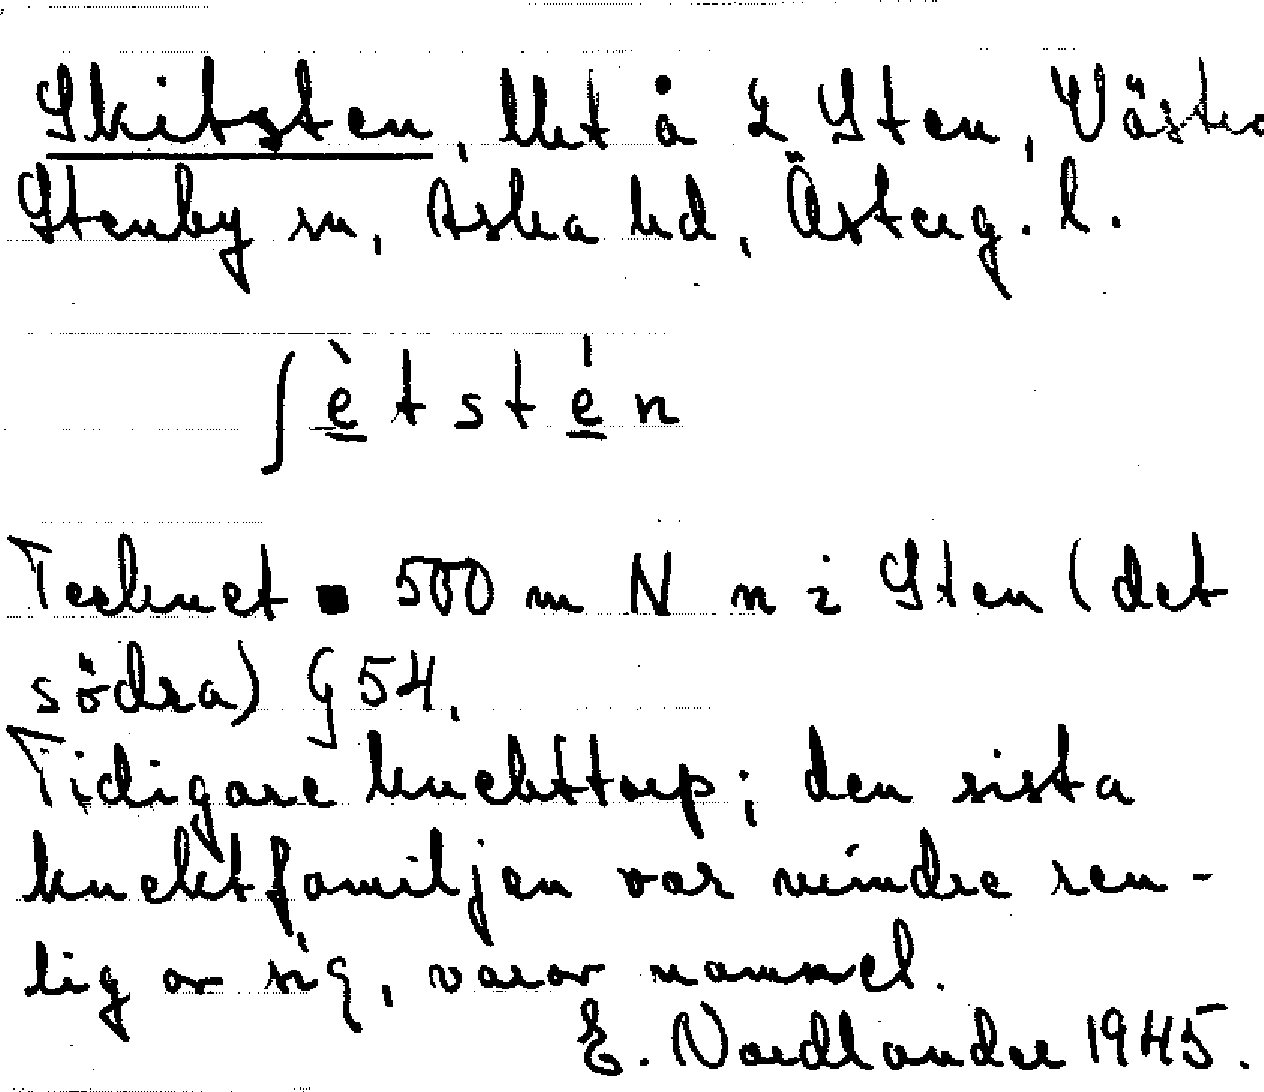 Skitsten, lht å 2 Sten, Västra
Stenby sn, Aska hd, Österg. l.
ʃ è̲ t s t é̲ n
Tecknet ▪ 500 m N n i Sten (det
södra) G54.
Tidigare knekttorp; den sista
knektfamiljen var mindre ren-
lig av sig, varav namnet.
E. Nordlander 1945.